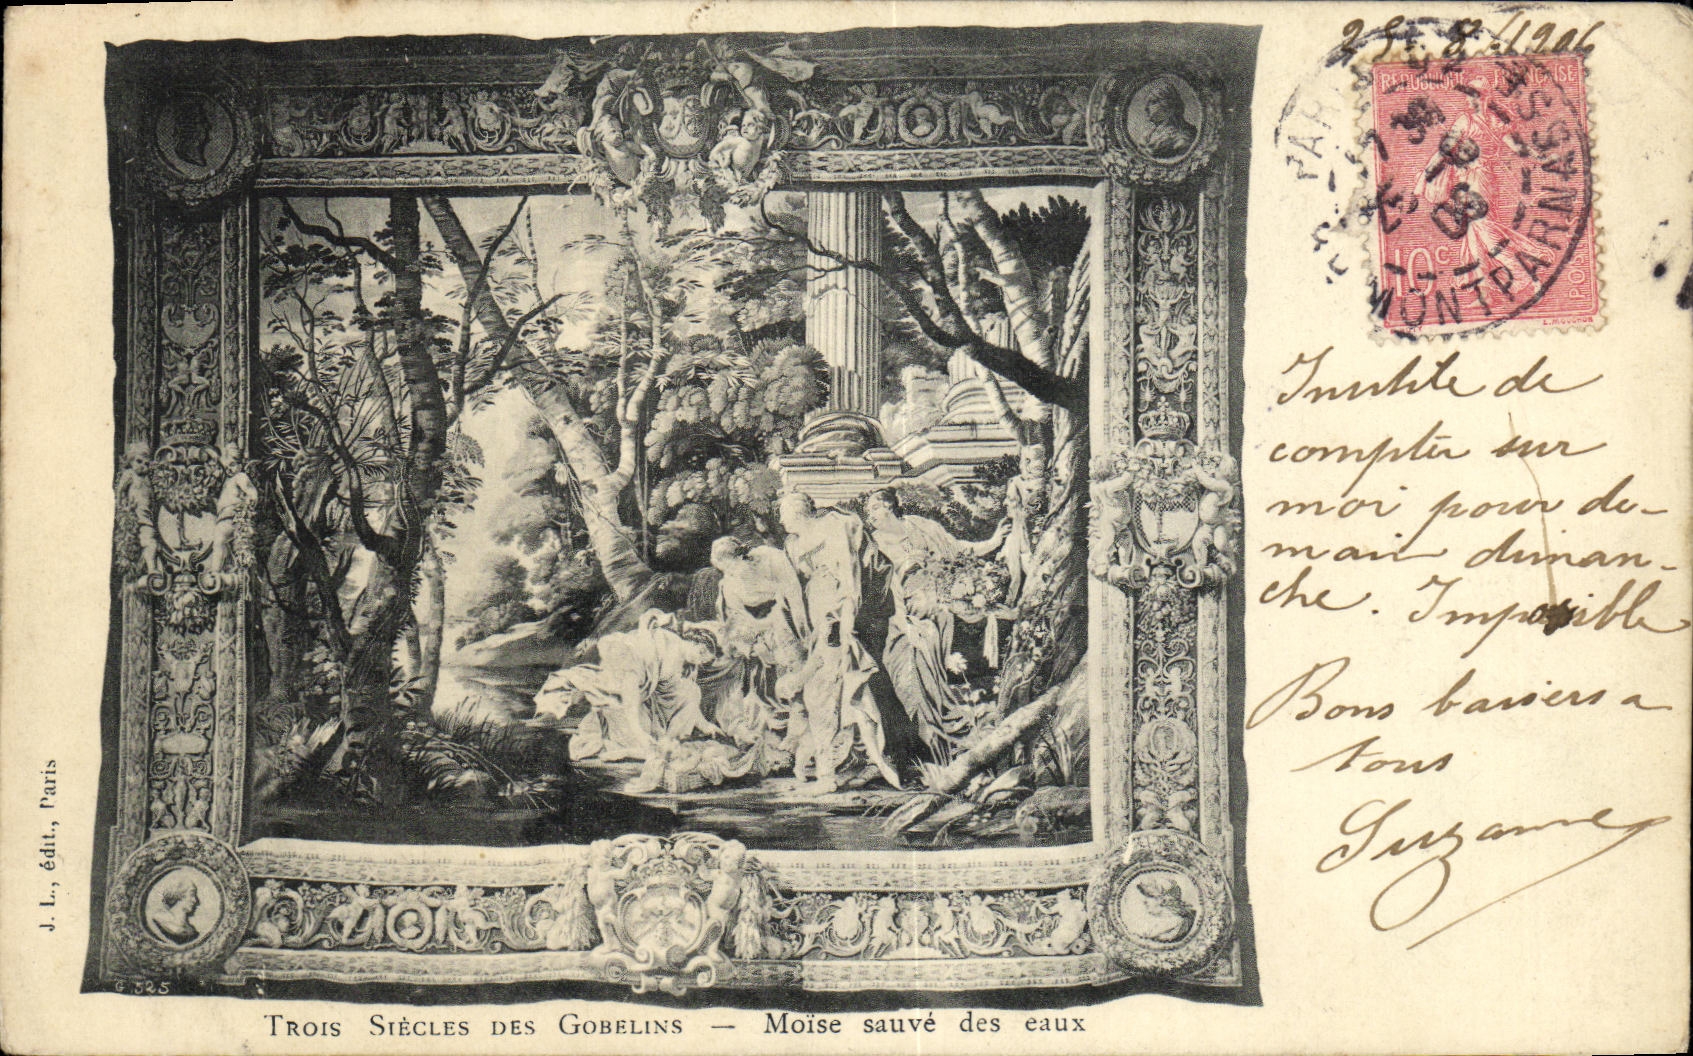 25. 8. 1906
REPUBLIQUE FRANÇAISE
10 c
POSTES
L. MOUCHON
PARIS
MONTPARNASSE
Inutile de
compter sur
moi pour de-
main diman-
che. Impossible
Bons baisers a
tous
Suzanne
J. L., édit., Paris
G 525
TROIS SIÈCLES DES GOBELINS — Moïse sauvé des eaux